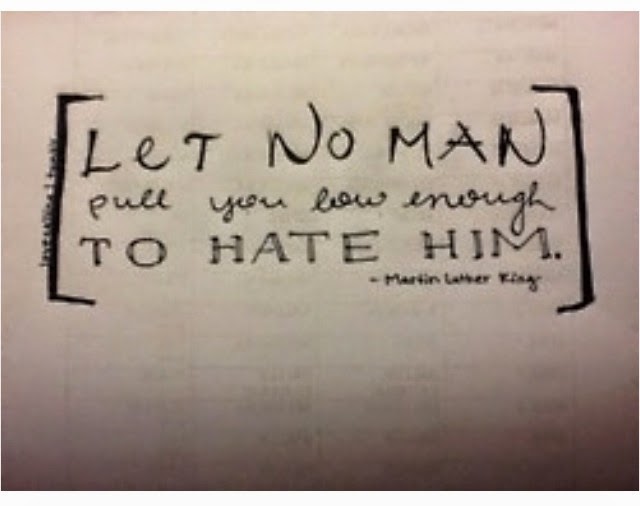 LET NO MAN
pull you low enough
TO HATE HIM.
- Martin Luther King-